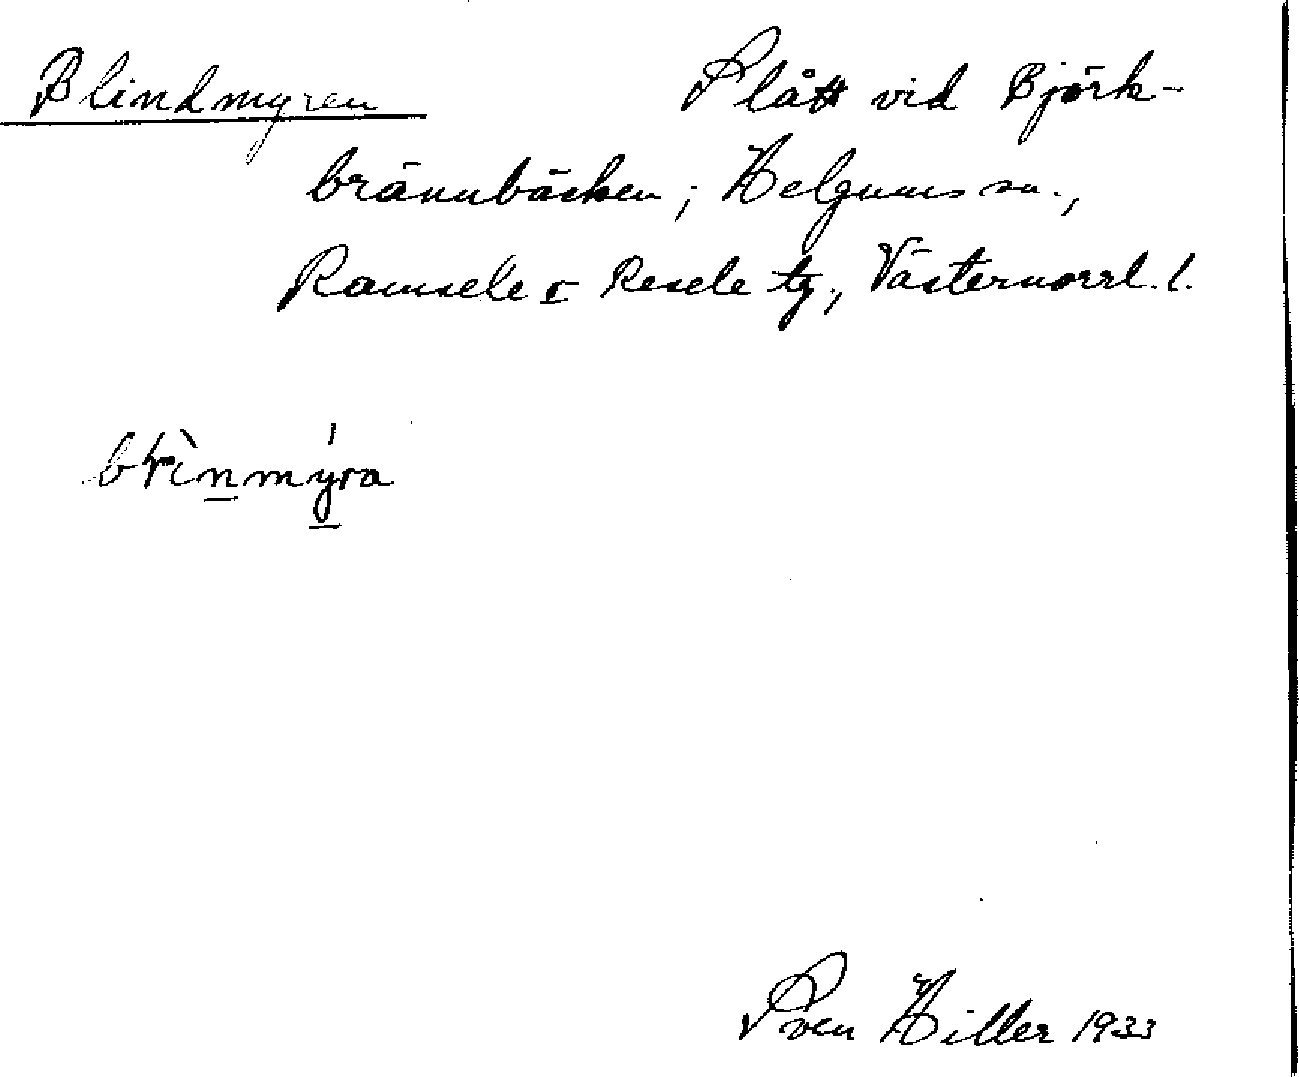 Blindmyren Slått vid Björk-
brännbäcken; Helgums sn.,
Ramsele o Resele tg., Västernorrl. l.
blìnmýra
Sven Hiller 1933